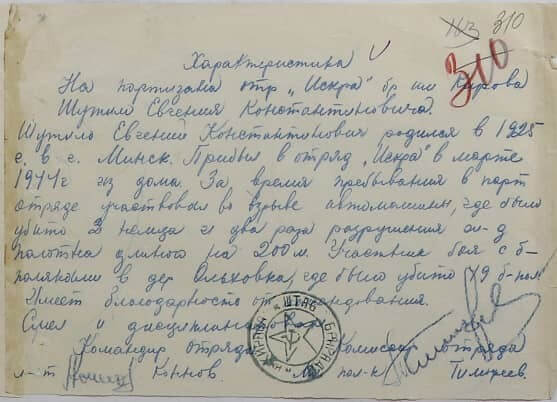 310
310
Характеристика
На партизана отр. „Искра" бр. им. Кирова
Шутыло Евгения Константиновича.
Шутыло Евгений Константинович родился в 1925
г. в г. Минск. Прибыл в отряд „Искра" в марте
1944 г из дома. За время пребывания в парт
отряде участвовал во взрыве автомашины, где было
убито 2 немца и два раза разрушения ж-д
полотна длиною на 200 м. Участник боя с б-
поляками в дер Ольховка, где было убито 79 б-пол.
Имеет благодарность от командования.
Смел и дисциплинирован.
Командир отряда Комиссар отряда
л-т Коннов. пол-к Тимачев.
ШТАБ БРИГАДЫ